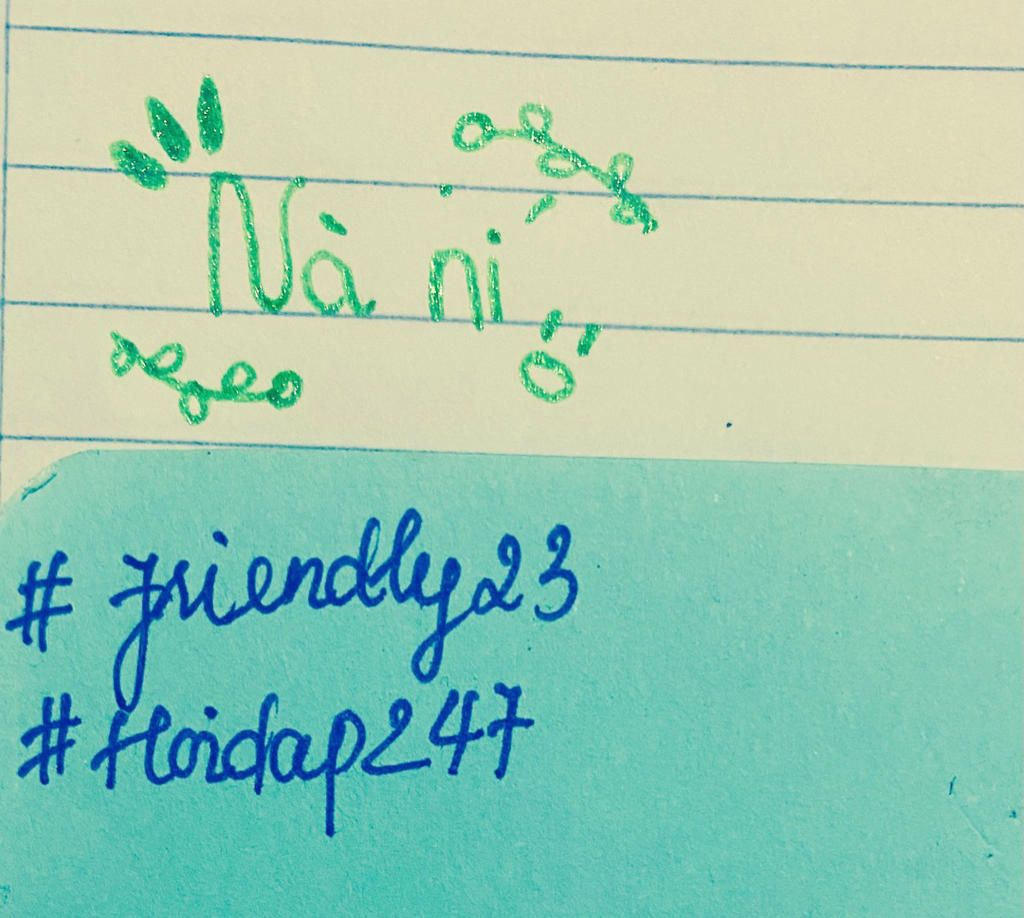 Nà ní
# friendly23
#Hoidap247